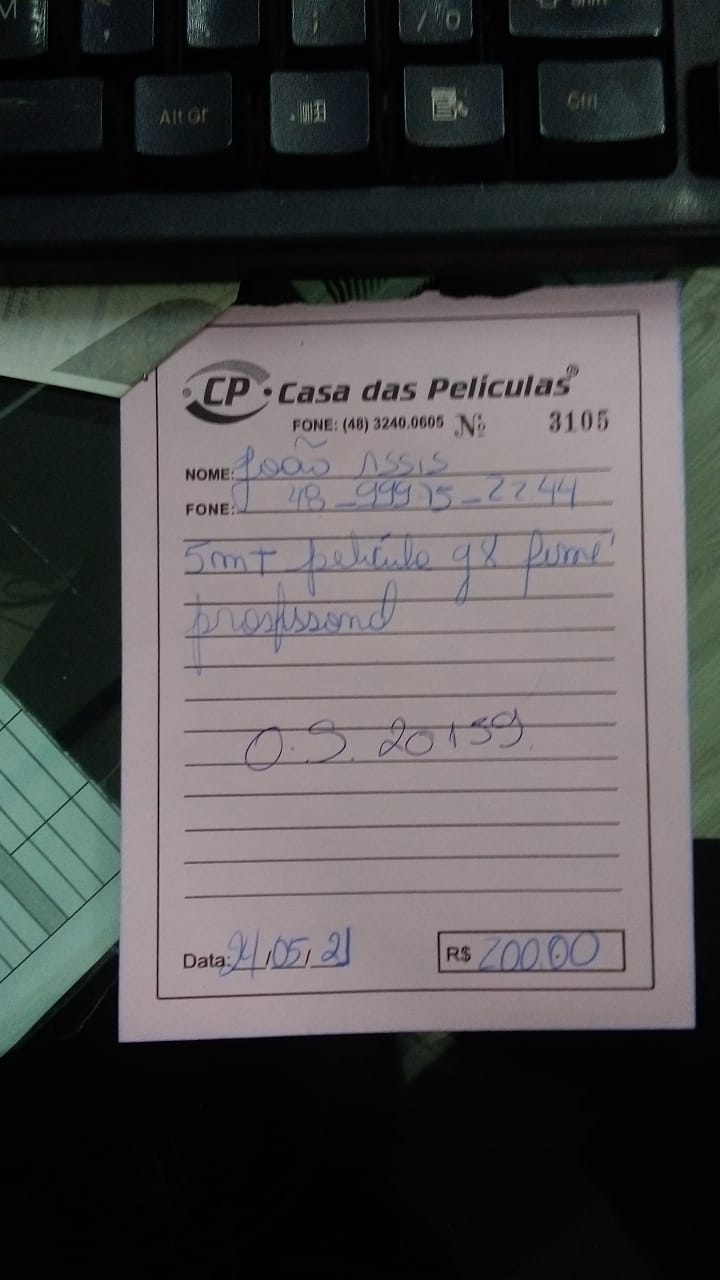 Alt Gr
Ctrl
CP Casa das Películas®
FONE: (48) 3240.0605 Nº 3105
NOME: João Assis
FONE: 48-99975-2244
5mt película g8 fumê
O.S. 20159.
Data: 24/05/21 R$ 200.00